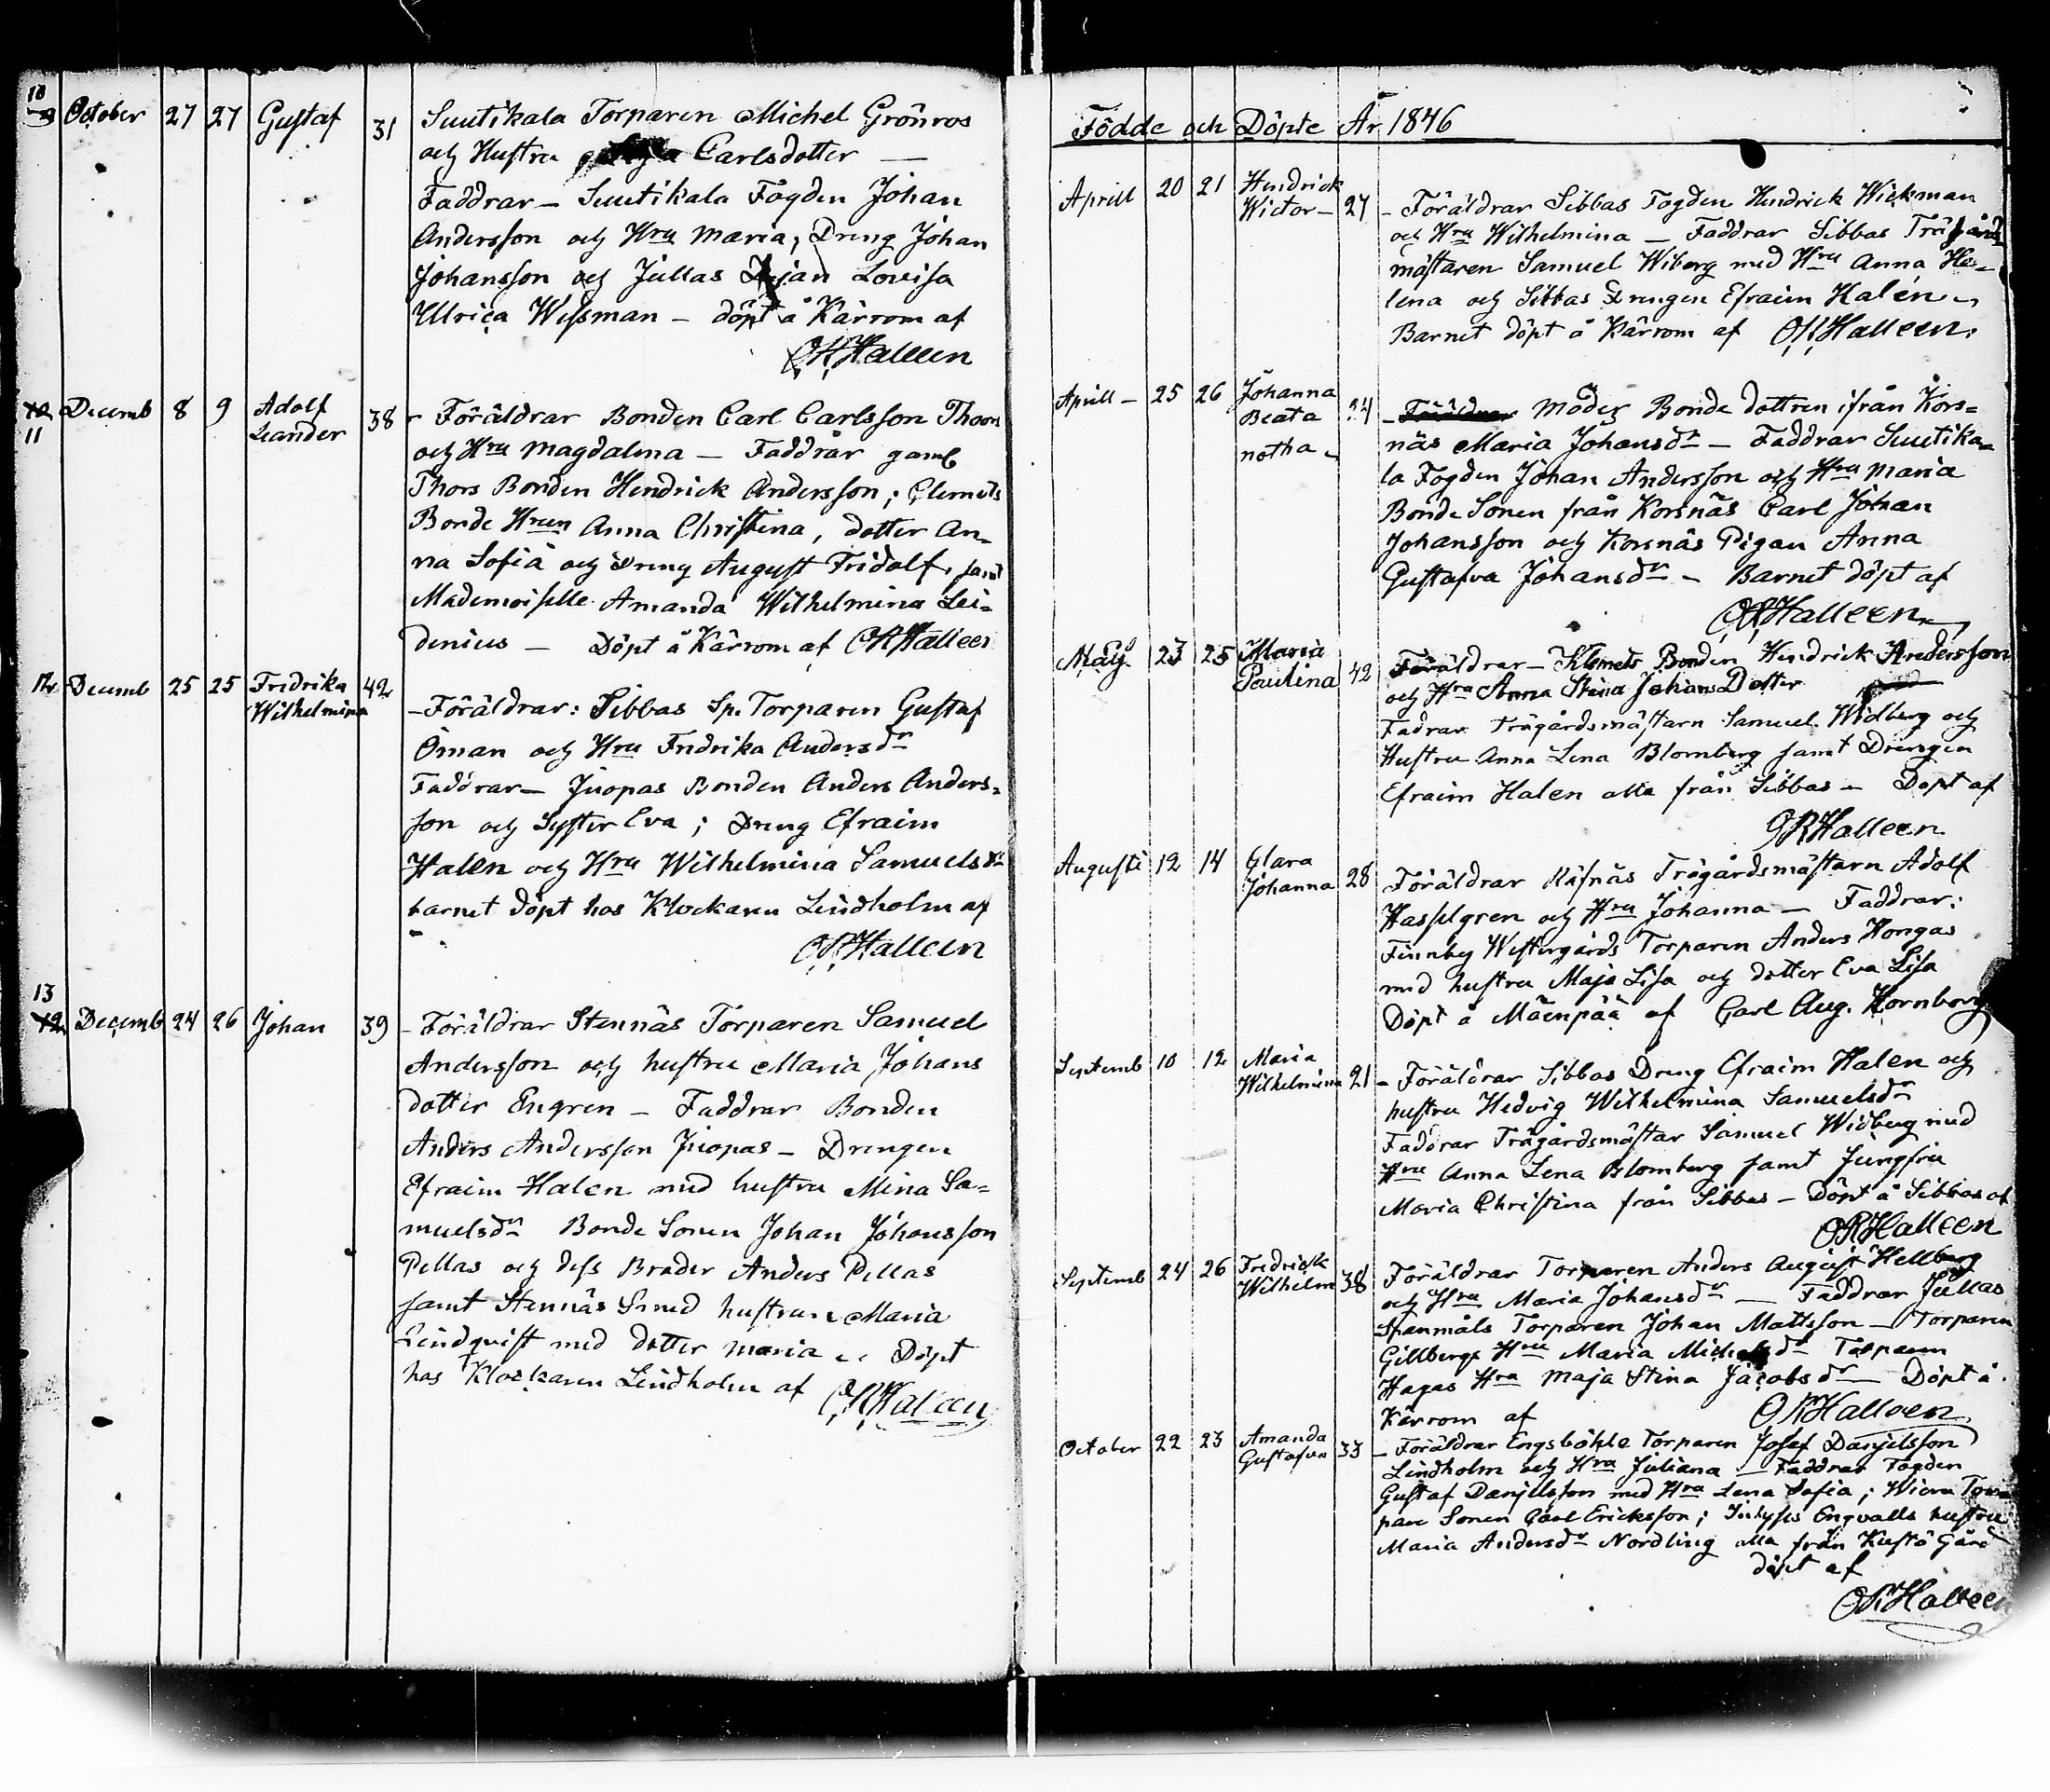 10 October 27 27 Gustaf 31 Suutikala Torparen Michel Grönros
och Hustru Carlsdotter —
Faddrar — Suutikala Fogden Johan
Andersson och Hru Maria, Dreng Johan
Johansson och Jullas Pigan Lovisa
Ullrica Wessman — döpt å Kärrom af
OR Halleen
11 Decemb 8 9 Adolf Leander 38 Föräldrar Bonden Carl Carlsson Thors
och Hru Magdalena — Faddrar gamb
Thors Bonden Hendrick Andersson; Clemets
Bonde Hrun Anna Christina, dotter An-
na Sofia och Dreng August Fridolf, samt
Mademoiselle Amanda Wilhelmina Lei-
denius — Döpt å Kärrom af OR Halleen
12 Decemb 25 25 Fredrika Wilhelmina 42
— Föräldrar: Sibbas Sp. Torparen Gustaf
Öman och Hru Fredrika Andersdr
Faddrar — Juopas Bonden Anders Anders-
son och Syster Eva; Dreng Efraim
Halen och Hru Wilhelmina Samuelsdr
barnet döpt hos Klockaren Lindholm af
OR Halleen
13 Decemb 24 26 Johan 39 — Föräldrar Stennäs Torparen Samuel
Andersson och hustru Maria Johans
dotter Engren — Faddrar Bonden
Anders Andersson Juopas — Drengen
Efraim Halen med hustru Mina Sa-
muelsdr Bonde Sonen Johan Johansson
Pellas och dess Broder Anders Pellas
samt Stennäs Smed hustrun Maria
Lindqvist med dotter Maria Döpt
hos Klockaren Lindholm af OR Halleen
Födde och Döpte År 1846
Aprill 20 21 Hendrick Wictor — 27 — Föräldrar Sibbas Fogden Hendrick Wickman
och Hru Wilhelmina — Faddrar Sibbas Trägårds
mästaren Samuel Wiberg med Hru Anna He-
lena och Sibbas Drengen Efraim Halen
Barnet döpt å Kärrom af OR Halleen.
Aprill — 25 26 Johanna Beata notha 24 — Föräldrar Moder Bonde dottren ifrån Kors-
näs Maria Johansdr — Faddrar Suutika-
la Fogden Johan Andersson och Hru Maria
Bonde Sonen från Korsnäs Carl Johan
Johansson och Korsnäs Pigan Anna
Gustafva Johansdr — Barnet döpt af
OR Halleen
Maij 23 25 Maria Paulina 42 Föräldrar — Klemets Bonden Hendrick Andersson
och Hru Anna Stina Johans Dotter
Fadrar Trägårdsmästarn Samuel Widberg och
Hustru Anna Lena Blomberg samt Drengen
Efraim Halen alla från Sibbas — Döpt af
OR Halleen
Augusti 12 14 Clara Johanna 28 Föräldrar Räfnäs Trägårdsmästarn Adolf
Hasselgren och Hru Johanna — Faddrar:
Finnby Westergårds Torparen Anders Hongas
med hustru Maja Lisa och dotter Eva Lisa
Döpt å Mäenpää af Carl Aug. Hornborg
Septemb 10 12 Maria Wilhelmina 21 — Föräldrar Sibbas Dreng Efraim Halen och
hustru Hedvig Wilhelmina Samuelsdr
Faddrar Trägårdsmästar Samuel Widberg med
Hru Anna Lena Blomberg samt Jungfru
Maria Christina från Sibbas — Döpt å Sibbas af
OR Halleen
Septemb 24 26 Fredrick Wilhelm 38 Föräldrar Torparen Anders August Hellberg
och Hru Maria Johansdr — Faddrar Jullas
Spanmåls Torparen Johan Mattsson — Torparen
Gillbergs Hru Maria Michelsdr Torparen
Hagas Hru Maja Stina Jacobsdr — Döpt å
Kärrom af OR Halleen
October 22 23 Amanda Gustafva 33 — Föräldrar Engsböhle Torparen Josef Danjelsson
Lindholm och Hru Juliana — Faddrar Fogden
Gustaf Danjelsson med Hru Lena Sofia; Tor-
pare Sonen Carl Ericksson; Inhyses Engvalls hustru
Maria Andersdr Nordling alla från Kustö Gård
döpt af
OR Halleen